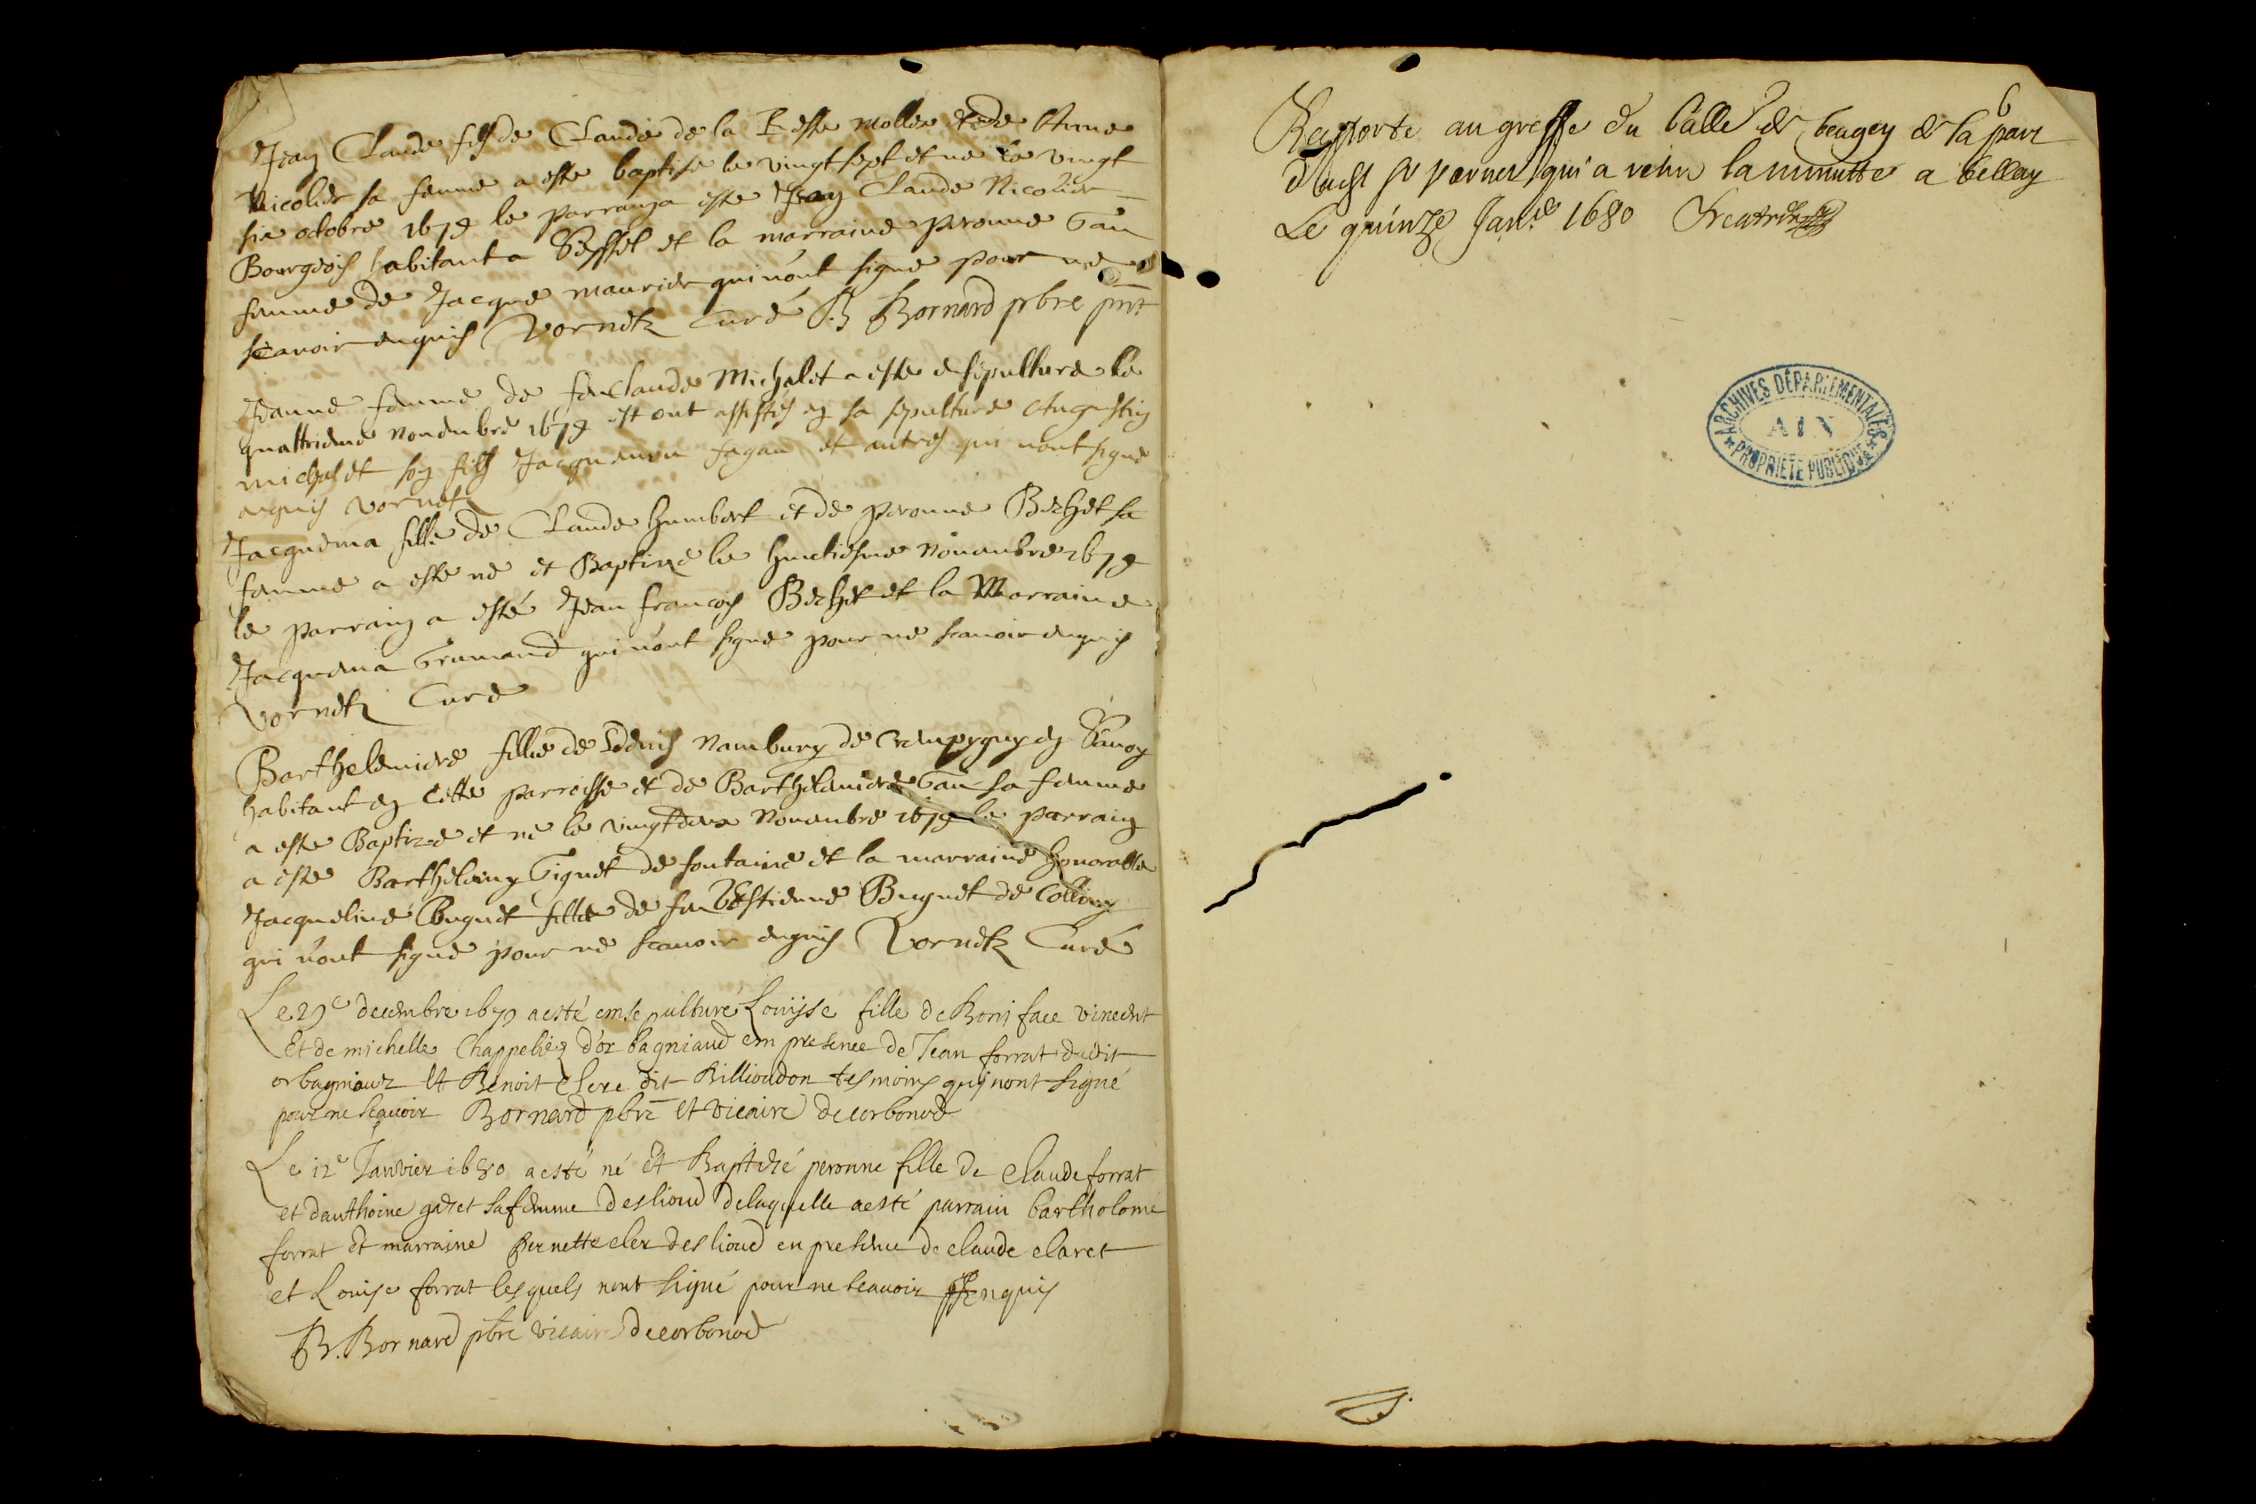 Jean Claude fils de Claude de la Reste moller et de Anne
Nicolier sa femme a este baptise le vingt sept et ne le vingt
six octobre 1679 le parrain a este Jean Claude Nicolier
Bourgeois habitant a Seyssel et la marraine peronne Gau
femme de Jacque maurier qui n'ont signe pour ne
scavoir enquis Vornetz Curé B Bornard pbre pnt
Jeanne femme de feu Claude Michalet a este ensepulture le
quattrieme Nonembre 1679 et ont assistes en sa sepulture Augustin
michalet son fils Jacquemin et autres qui nont signe
enquis Vornetz
Jacquema fille de Claude humbert et de peronne Bechet sa
femme a este ne et Baptize le huictiesme Nouembre 1679
le parrain a esté Jean francois Bechet et la Marraine
Jacquema Grumand qui n'ont signe pour ne scauoir enquis
Vornetz Curé
Barthelemiere fille de Nambury de en Sauoy
habitant en Cette parroisse et de Barthelemiere Gau sa femme
a este Baptize et ne le vingt deux Nouembre 1679 le parrain
a este Barthelemy Giguet de fontaine et la marraine honorable
Jacqueline Buguet fille de feu Estienne Buguet de Colliny
qui n'ont signe pour ne scauoir enquis Vornetz Curé
Le 29e decembre 1679 a esté ensepulturé Louisse fille de Boniface vincent
Et de michelle Chappeliez d'orbagniaud em presence de Jean forrat dudit
orbagniauz Et Benoit Clere dit Billioudon tesmoins qui nont signé
pour ne scauoir Bornard pbre Et Vicaire de corbonod
Le 12e Janvier 1680 a esté né Et Baptizé peronne fille de Claude forrat
et danthoine gazet sa femme deslioud de laquelle a esté parrain bartholome
forrat et marraine pernette cler deslioud en presence de claude claret
et Louise forrat lesquels nont signé pour ne scauoir enquis
B. Bornard pbre vicaire de corbonod
6
Rapporte au greffe du balle de beugey de la part
dudit Sr vornet qui a retire la minutte a bellay
Le quinze Janr 1680
ARCHIVES DÉPARTEMENTALES
AIN
PROPRIETE PUBLIQUE